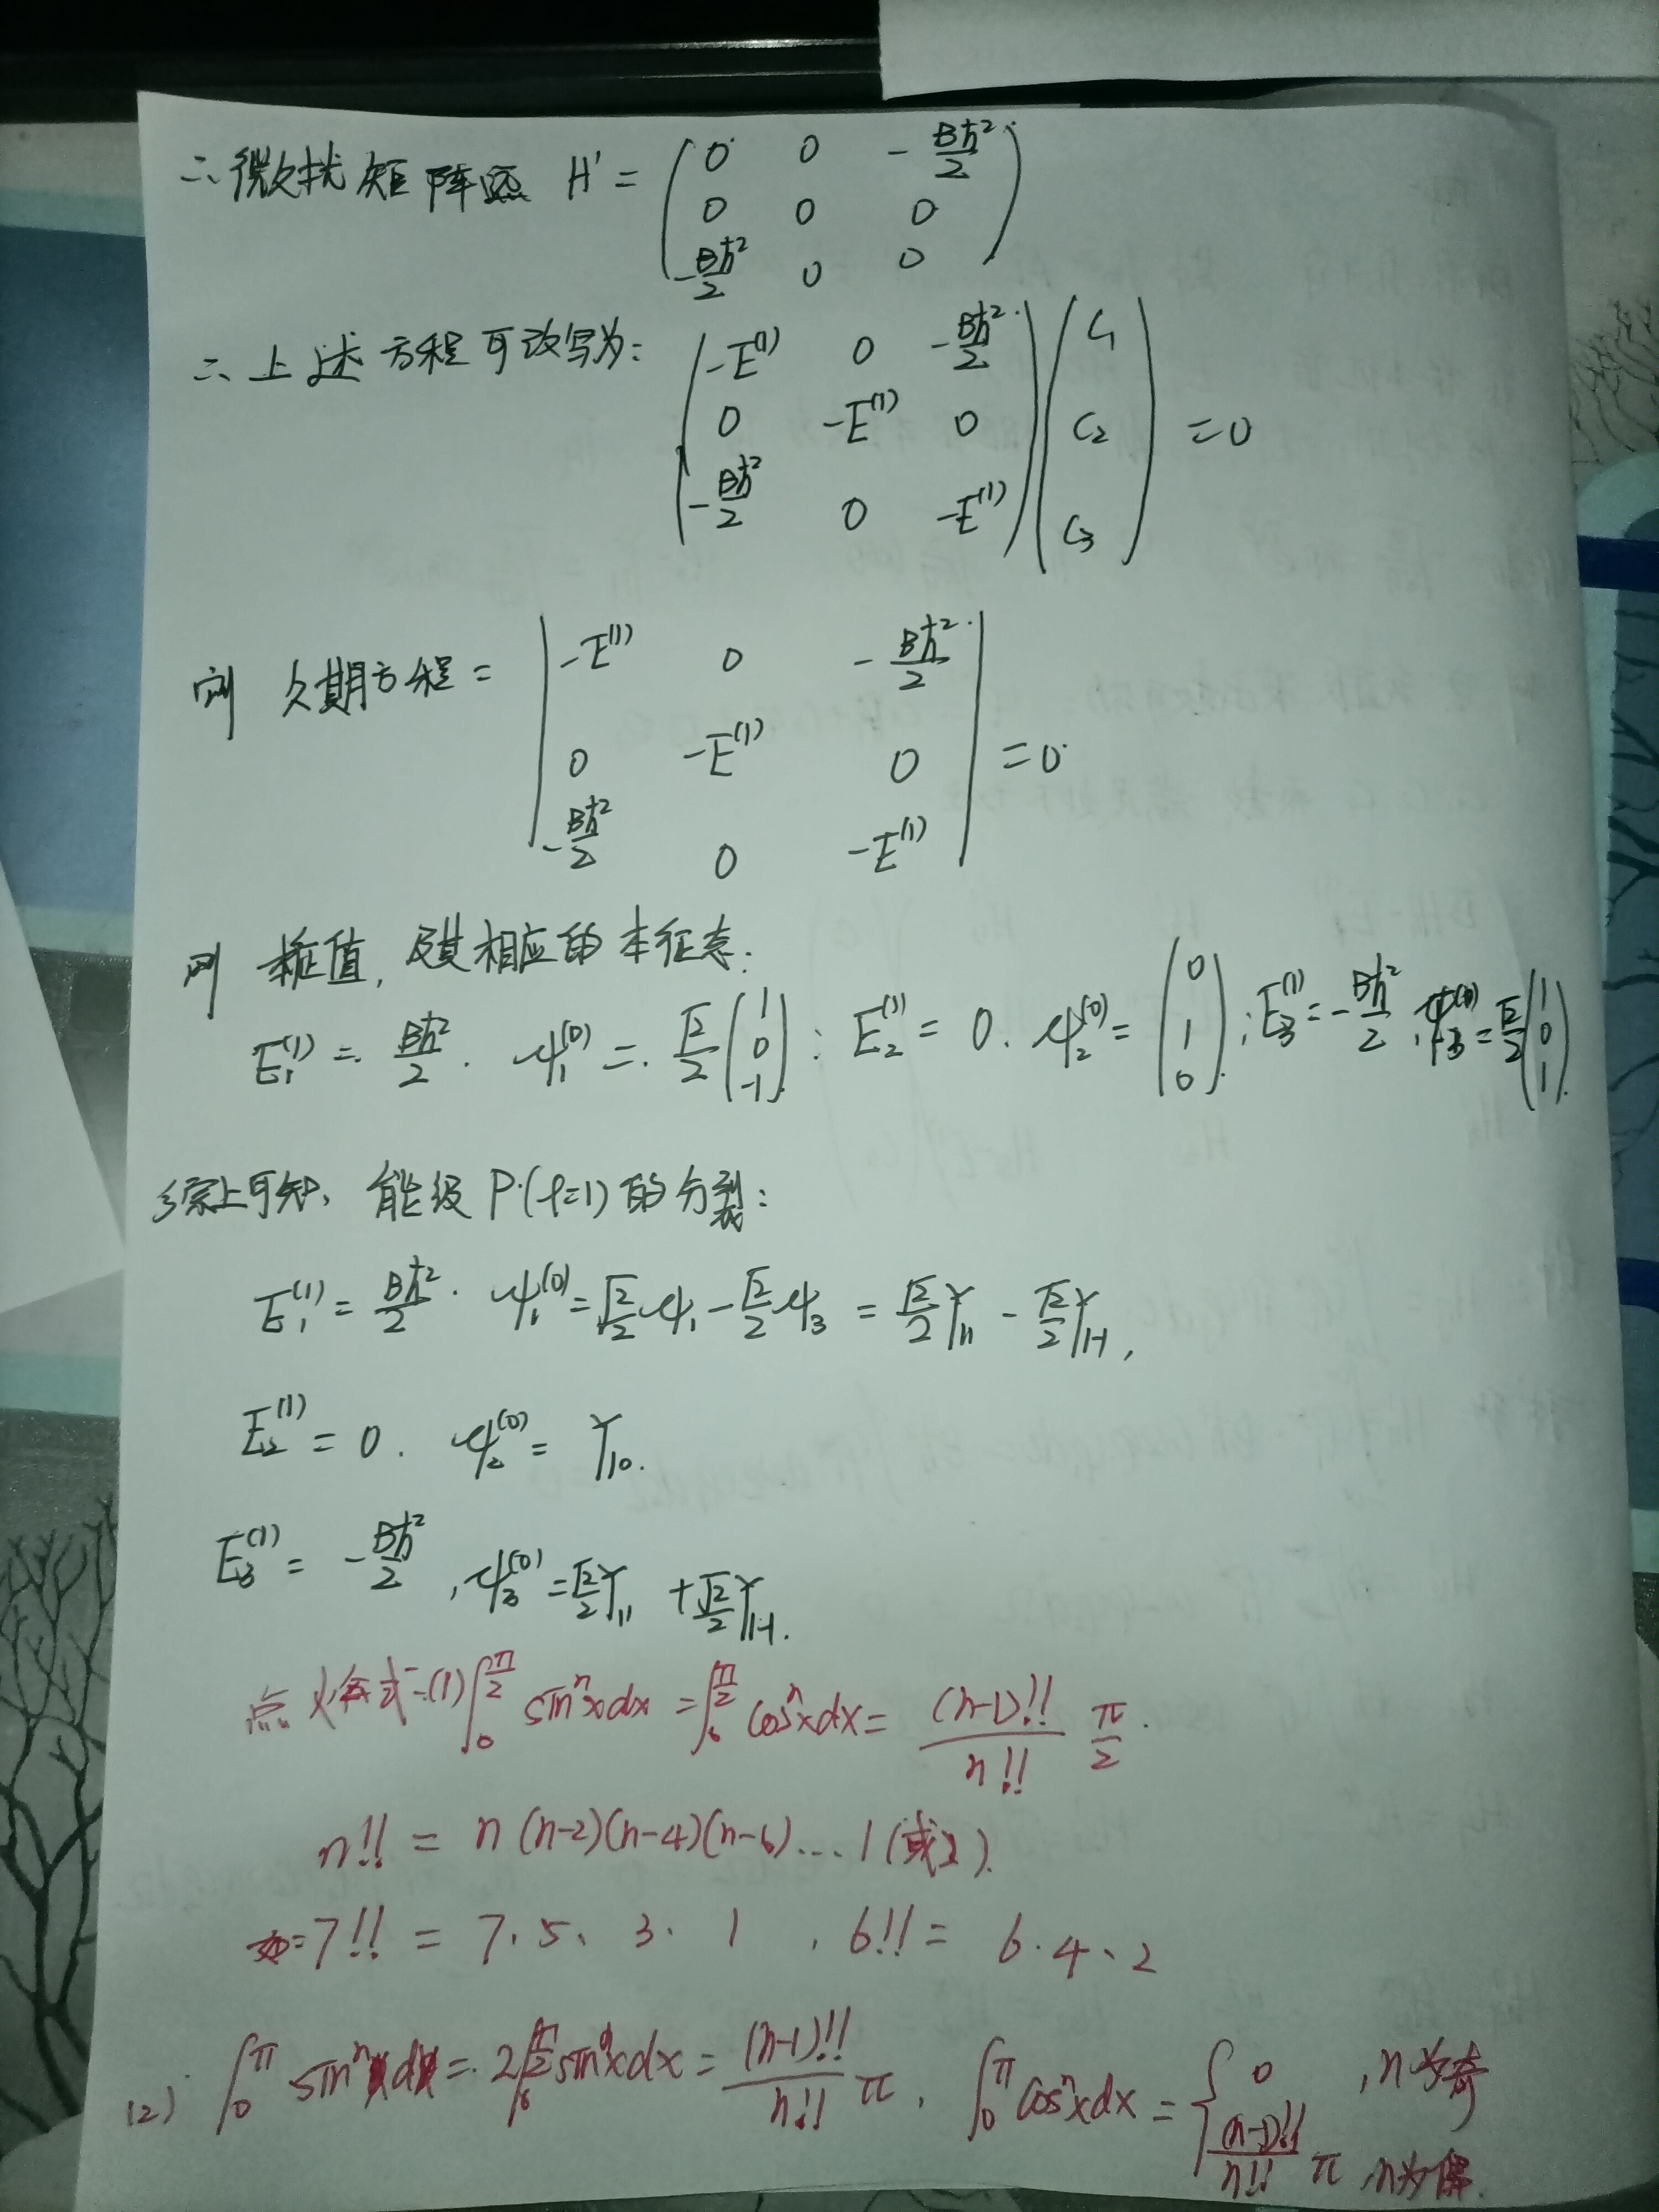 ∴ 微扰矩阵为 H' = ( 0 0 -Bħ²/2 ; 0 0 0 ; -Bħ²/2 0 0 )
∴ 上述方程可改写为: ( -E⁽¹⁾ 0 -Bħ²/2 ; 0 -E⁽¹⁾ 0 ; -Bħ²/2 0 -E⁽¹⁾ ) ( C₁ ; C₂ ; C₃ ) = 0
则 久期方程 = | -E⁽¹⁾ 0 -Bħ²/2 ; 0 -E⁽¹⁾ 0 ; -Bħ²/2 0 -E⁽¹⁾ | = 0
则 本征值, 及其相应的本征态:
E₁⁽¹⁾ = Bħ²/2. ψ₁⁽⁰⁾ = √2/2 ( 1 ; 0 ; -1 ); E₂⁽¹⁾ = 0. ψ₂⁽⁰⁾ = ( 0 ; 1 ; 0 ); E₃⁽¹⁾ = -Bħ²/2, ψ₃⁽⁰⁾ = √2/2 ( 1 ; 0 ; 1 ).
综上可知, 能级 P (l=1) 的分裂:
E₁⁽¹⁾ = Bħ²/2. ψ₁⁽⁰⁾ = √2/2 ψ₁ - √2/2 ψ₃ = √2/2 Y₁₁ - √2/2 Y₁₋₁,
E₂⁽¹⁾ = 0. ψ₂⁽⁰⁾ = Y₁₀.
E₃⁽¹⁾ = -Bħ²/2, ψ₃⁽⁰⁾ = √2/2 Y₁₁ + √2/2 Y₁₋₁.
点火公式: (1) ∫₀^(π/2) sinⁿx dx = ∫₀^(π/2) cosⁿx dx = (n-1)!!/n!! π/2.
n!! = n (n-2)(n-4)(n-6)... 1 (或2).
如: 7!! = 7·5·3·1, 6!! = 6·4·2
(2) ∫₀^π sinⁿx dx = 2∫₀^(π/2) sinⁿx dx = (n-1)!!/n!! π, ∫₀^π cosⁿx dx = { 0, n为奇 ; (n-1)!!/n!! π, n为偶.